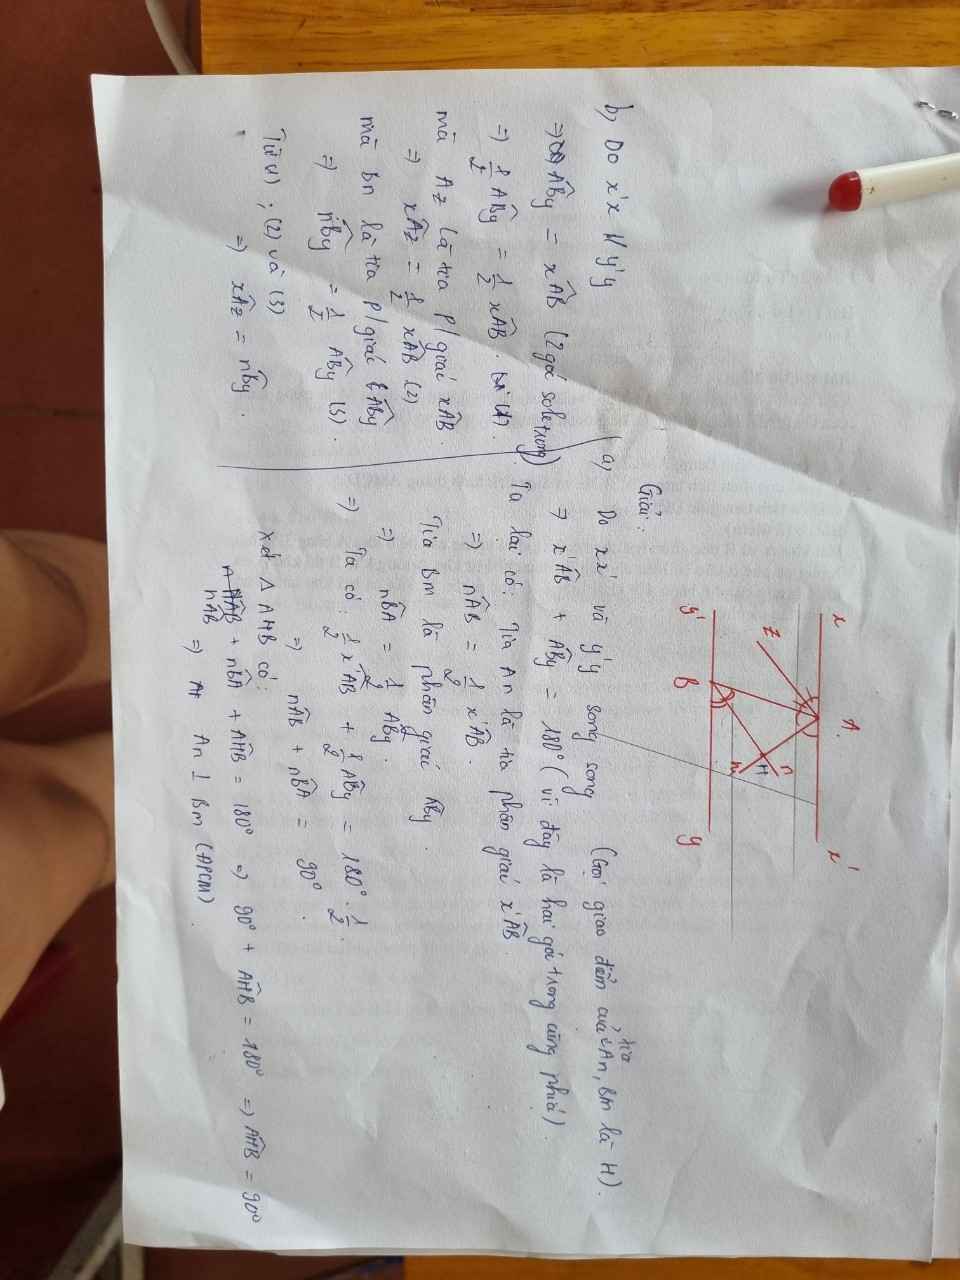 x A x'
z n
H
m
y' B y
Giải:
a) Do xx' và y'y song song (Gọi giao điểm của tia An, Bm là H).
⇒ x'ÂB + ABy = 180° (vì đây là hai góc trong cùng phía).
Ta lại có: Tia An là tia phân giác x'ÂB.
⇒ nÂB = 1/2 x'ÂB.
Tia Bm là phân giác ABy.
⇒ nBA = 1/2 ABy.
⇒ Ta có: 1/2 x'AB + 1/2 ABy = 180°. 1/2
⇒ nAB + nBA = 90°.
xđ Δ AHB có:
nAB + nBA + AHB = 180° ⇒ 90° + AHB = 180° ⇒ AHB = 90°
⇒ An ⊥ Bm (ĐPCM).
b) Do x'x // y'y
⇒ ABy = xAB (2 góc sole trong)
⇒ 1/2 ABy = 1/2 xAB. (1).
mà Az là tia p/giác xAB.
⇒ xAz = 1/2 xAB (2)
mà Bn là tia p/giác ABy
⇒ nBy = 1/2 ABy (3).
Từ (1); (2) và (3)
⇒ xAz = nBy.